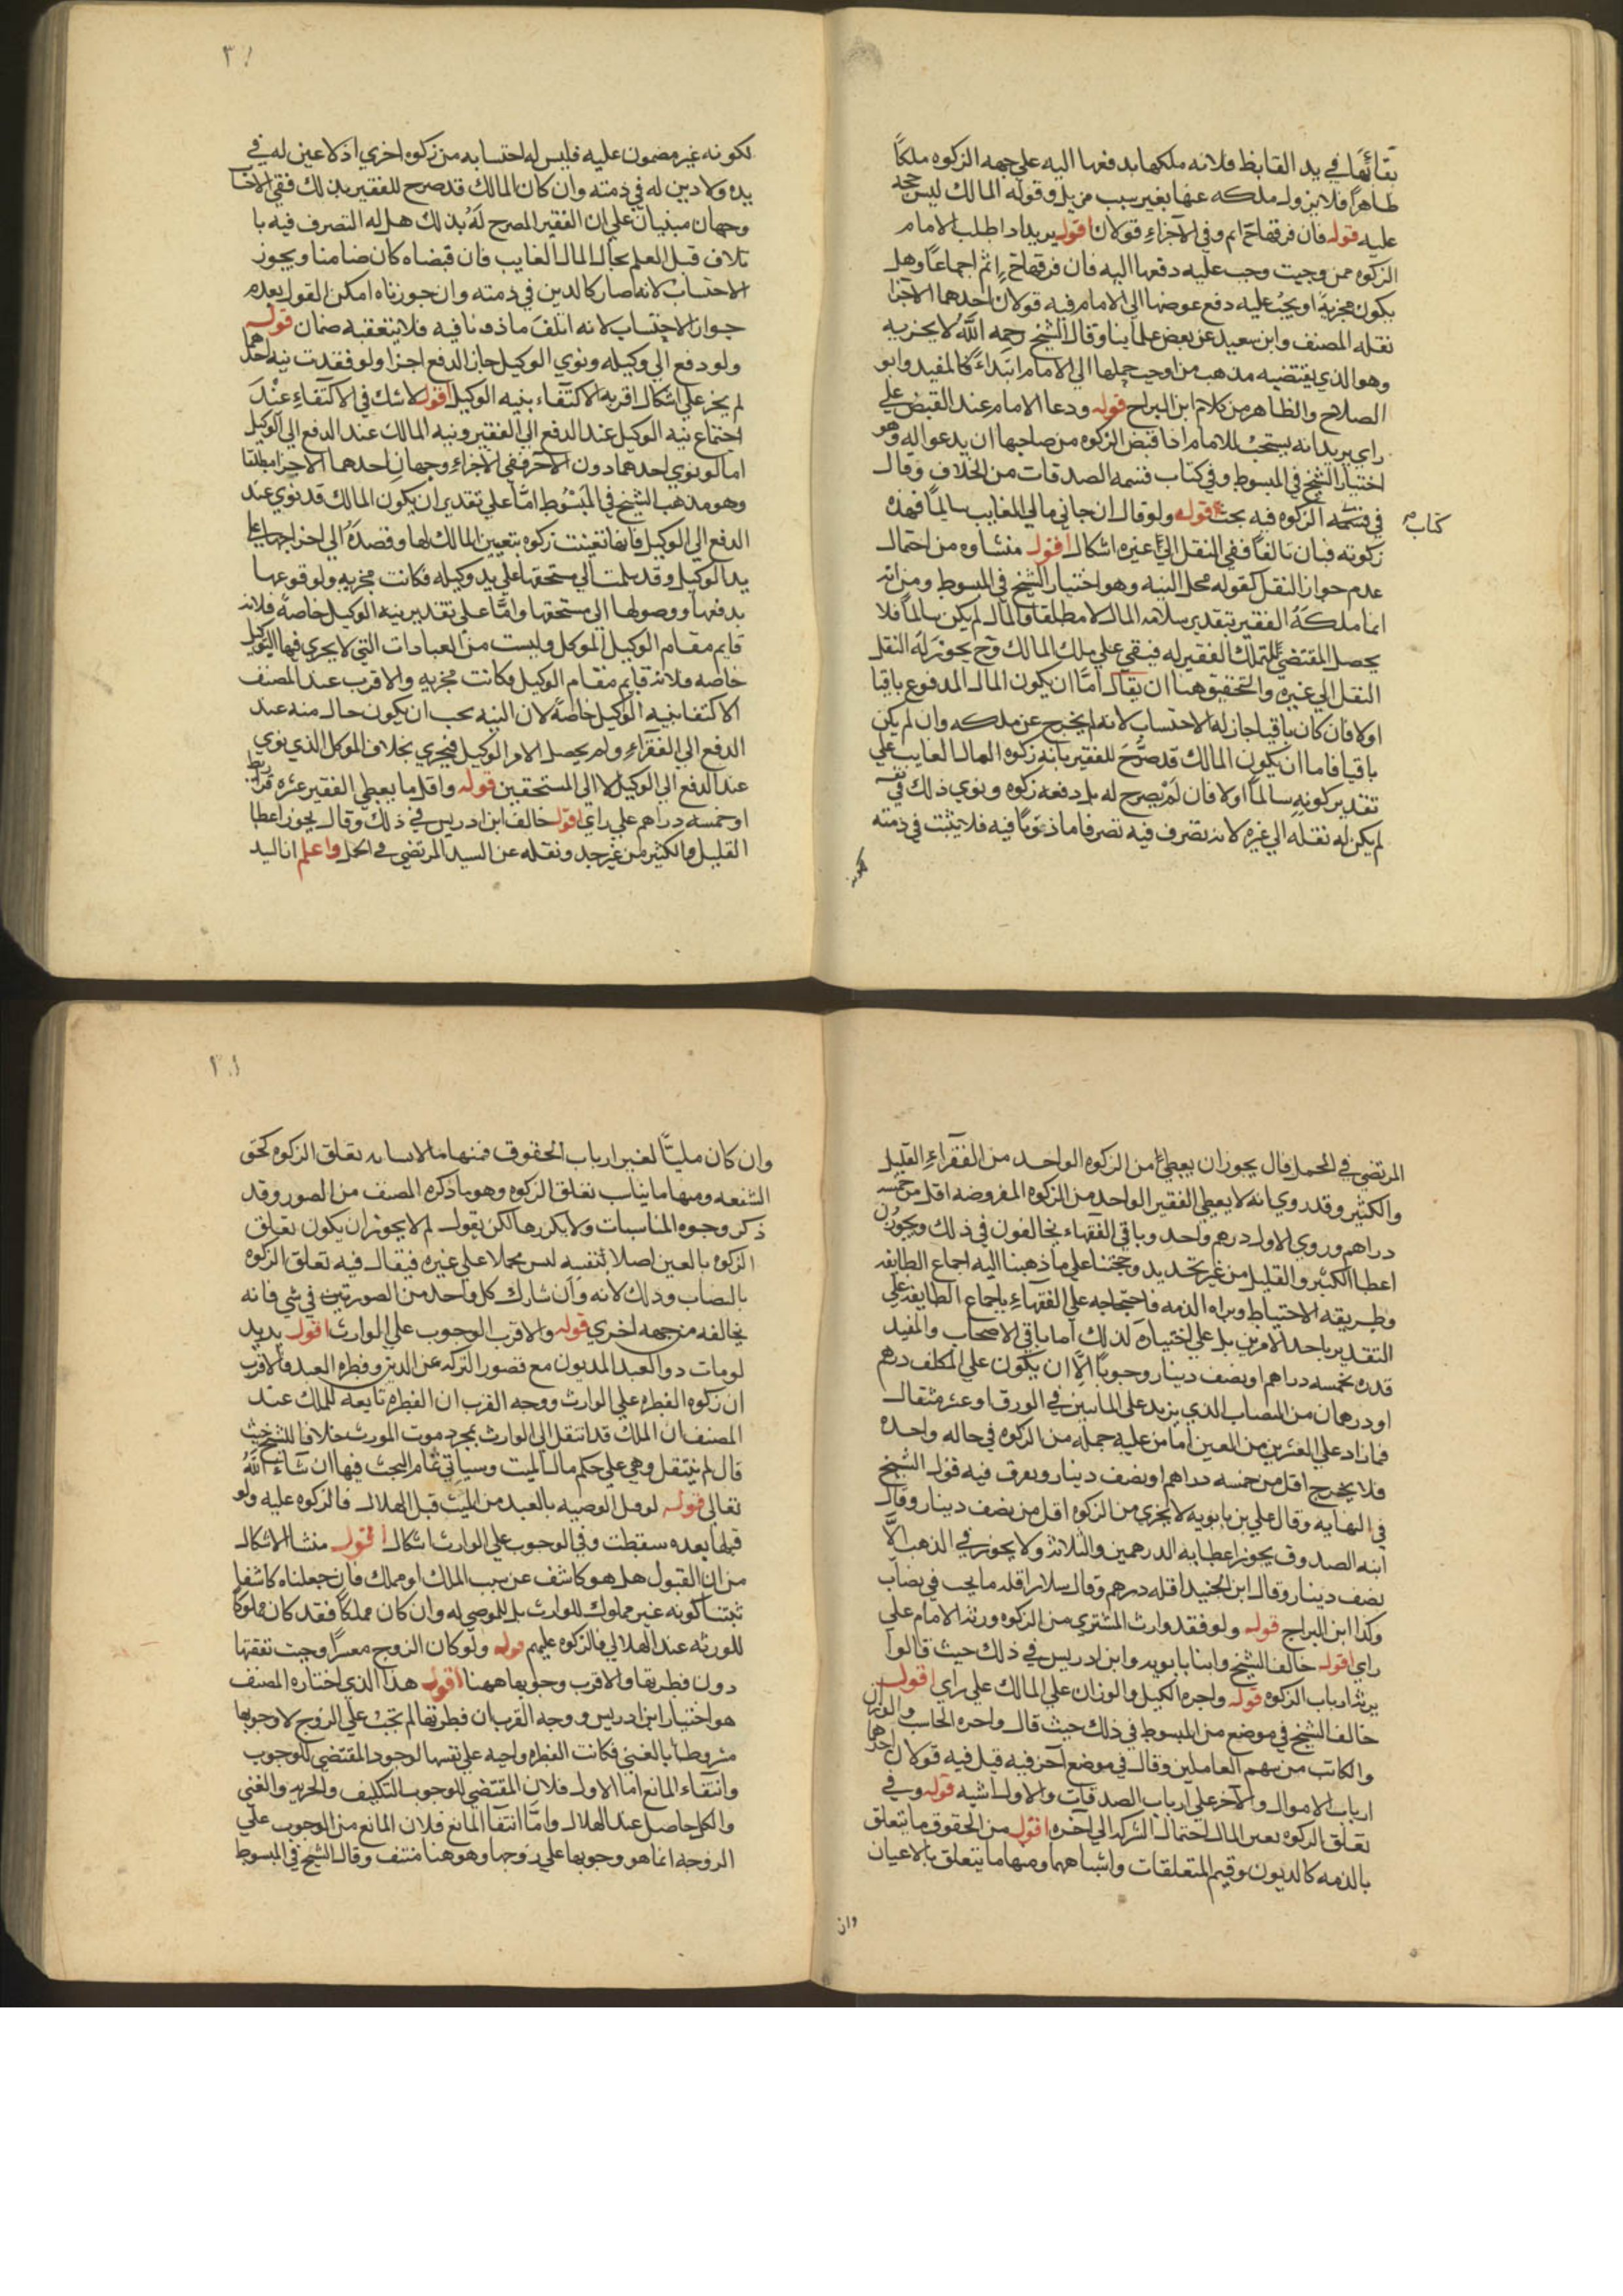 بقائها في يد القابض فلانه ملكها بدفعها اليه علي جهه الزكوه ملكًا
ظاهرًا فلا يزول ملكه عنها بغير سبب مزيل وقوله المالك ليس حجه
عليه قوله فان فرقها ح اثم وفي الاجزاء قولان اقول يريد اذا طلب الامام
الزكوه ممن وجبت وجب عليه دفعها اليه فان فرقها ح اثم اجماعًا وهل
يكون مجزية او يجب عليه دفع عوضها الي الامام فيه قولان احدهما الاجزا
نقله المصنف وابن سعيد عن بعض علماينا وقال الشيخ رحمه الله لا يجزيه
وهو الذي يقتضيه مذهب من اوجب حملها الي الامام ابتداءً كالمفيد وابو
الصلاح والظاهر من كلام ابن البراج قوله ودعا الامام عند القبض علي
راي يريد انه يستحب للامام اذا قبض الزكوه من صاحبها ان يدعو له وهو
اختيار الشيخ في المبسوط وفي كتاب قسمه الصدقات من الخلاف وقال
في قسمه الزكوه فيه يجب قوله ولو قال ان جاني مالي الغايب سالمًا فهذه
كتاب
زكوته فبان تالفًا ففي النقل الي غيره اشكال اقول منشاوه من احتمال
عدم جواز النقل كقوله محل النيه وهو اختيار الشيخ في المبسوط ومن انه
انما ملكه الفقير بتقدير سلامه المال لا مطلقا والمال لم يكن سالمًا فلا
يحصل المقتضي لتملك الفقير له فيبقي علي ملك المالك وح يجوز له النقل
النقل الي غيره والتحقيق هنا ان يقال اما ان يكون المال المدفوع باقيا
اولا فان كان باقيا جاز له الاحتساب لانه لم يخرج عن ملكه وان لم يكن
باقيا فاما ان يكون المالك قد صرح للفقير بانه زكوه المال الغايب علي
تقدير كونه سالمًا اولا فان لم يصرح له بل دفعه زكوه ونوي ذلك في نفسه
لم يكن له نقله الي غيره لانه تصرف فيه تصرفا ماذونًا فيه فلا يثبت في ذمته
لكونه
لكونه غير مضمون عليه فليس له احتسابه من زكوه اخري اذ لا عين له في
يده ولا دين له في ذمته وان كان المالك قد صرح للفقير بذلك ففي الاحتسا
وجهان مبنيان علي ان الفقير المصرح له بذلك هل له التصرف فيه با
تلاف قبل العلم بحال المال الغايب فان قبضاه كان ضامنا ويجوز
الاحتساب لانه صار كالدين في ذمته وان جوزناه امكن القول بعدم
جواز الاحتساب لانه اتلف ماذونا فيه فلا يتعقبه ضمان قوله
ولو دفع الي وكيله ونوي الوكيل حال الدفع اجزا ولو فقدت نيه احدهما
لم يجز علي اشكال اقربه الاكتفاء بنيه الوكيل اقول لا شك في الاكتفاء عند
اجتماع نيه الوكيل عند الدفع الي الفقير ونيه المالك عند الدفع الي الوكيل
اما لو نوي احدهما دون الآخر ففي الاجزاء وجهان احدهما الاجزا مطلقا
وهو مذهب الشيخ في المبسوط امّا علي تقدير ان يكون المالك قد نوي عند
الدفع الي الوكيل فانها تعينت زكوه بتعيين المالك لها وقصده الي اخراجها علي
يد الوكيل وقد سلمت الي مستحقها علي يد وكيله فكانت مجزيه ولوقوعها
بدفعها ووصولها الي مستحقها وامّا علي تقدير نيه الوكيل خاصة فلانه
قايم مقام الوكيل الموكل وليست من العبادات التي لا يجري فيها التوكيل
خاصه فلانه قايم مقام الوكيل فكانت مجزيه والاقرب عند المصنف
الاكتفا بنيه الوكيل خاصة لان النيه يجب ان يكون حال منه عند
الدفع الي الفقراء ولم يحصل الا من الوكيل فيجزي بخلاف الموكل الذي نوي
عند الدفع الي الوكيل لا الي المستحقين قوله واقل ما يعطي الفقير عشره قراريط
او خمسه دراهم علي راي اقول خالف ابن ادريس في ذلك وقال يجوز اعطا
القليل والكثير من غير حد ونقله عن السيد المرتضي في الجمل واعلم ان السيد
المرتضي في الجمل قال يجوز ان يعطي من الزكوه الواحد من الفقراء القليل
والكثير وقد روي انه لا يعطي الفقير الواحد من الزكوه المفروضه اقل من خمسه
دراهم وروي الاول درهم واحد وباقي الفقهاء يخالفون في ذلك ويجوزون
اعطا الكثير والقليل من غير تحديد وحجتنا علي ما ذهبنا اليه اجماع الطايفه
وطريقه الاحتياط وبراه الذمه فاحتجاجه علي الفقهاء باجماع الطايفه علي
التقدير باحد الامرين يدل علي اختياره لذلك اما باقي الاصحاب والمفيد
قدره بخمسه دراهم او نصف دينار وجوبًا الّا ان يكون علي المكلف درهم
او درهمان من النصاب الذي يزيد علي الماتين في الورق او عشر مثقال
فما زاد علي العشرين من العين اما من عليه جمله من الزكوه في حاله واحده
فلا يخرج اقل من خمسه دراهم او نصف دينار وبعرق فيه قول الشيخ
في النهايه وقال علي بن بابويه لا يجزي من الزكوه اقل من نصف دينار وقال
ابنه الصدوق يجوز اعطا به الدرهمين والثلاثه ولا يجوز في الذهب الّا
نصف دينار وقال ابن الجنيد اقله درهم وقال سلار اقله ما يجب في نصاب
وكذا ابن البراج قوله ولو فقد وارث المشتري من الزكوه ورثه الامام علي
راي اقول خالف الشيخ وابنا بابويه وابن ادريس في ذلك حيث قالوا
يرثه ارباب الزكوه قوله واجره الكيل والوزان علي المالك علي راي اقول
خالف الشيخ في موضع من المبسوط في ذلك حيث قال واجره الحاسب والوزان
والكاتب من سهم العاملين وقال في موضع آخر فيه قيل فيه قولان احدهما
ارباب الاموال والآخر علي ارباب الصدقات والاول اشبه قوله وفي
تعلق الزكوه بعين المال احتمال الشركه الي آخره اقول من الحقوق ما يتعلق
بالذمه كالديون وقيم المتعلقات واشباههما ومنها ما يتعلق بالاعيان
وان
وان كان مليًّا لغير ارباب الحقوق فمنها تعلق الزكوه كحق
الشفعه ومنها ما يناب تعلق الزكوه وهو ما ذكره المصنف من الصور وقد
ذكر وجوه المناسبات ولا يكررها لكن نقول لم لا يجوز ان يكون تعلق
الزكوه بالعين اصلا بنفسه ليس محملا علي غيره فيقال فيه تعلق الزكوه
بالنصاب وذلك لانه وان شارك كل واحد من الصورتين في شي فانه
يخالفه من جهه اخري قوله والاقرب الوجوب علي الوارث اقول يريد
لو مات ذو العبد المديون مع قصور التركه عن الدين وفطره العبد فالاقرب
ان زكوه الفطره علي الوارث ووجه القرب ان الفطره تابعه للملك عند
المصنف ان الملك قد انتقل الي الوارث بمجرد موت المورث خلافا للشيخ حيث
قال لم ينتقل وهي علي حكم مال الميت وسياتي تمام البحث فيها ان شاء الله
تعالي قوله لو قبل الوصيه بالعبد من الميت قبل الهلال فالزكوه عليه ولو
قبلها بعده سقطت وفي الوجوب علي الوارث اشكال اقول منشا الاشكال
من ان القبول هل هو كاشف عن سبب الملك او مملك فان جعلناه كاشفا
ثبتنا كونه غير مملوك للوارث بل للموصي له وان كان مملكًا فقد كان مملوكًا
للورثه عند الهلالي فالزكوه عليهم قوله ولو كان الزوج معسرًا وجبت نفقتها
دون فطرتها والاقرب وجوبها ههنا اقول هذا الذي اختاره المصنف
هو اختيار ابن ادريس ووجه القرب ان فطرتها لم تجب علي الزوج لا وجوبها
مشروطا بالغني فكانت الفطره واجبه علي نفسها لوجود المقتضي للوجوب
وانتفاء المانع اما الاول فلان المقتضي للوجوب التكليف والحريه والغني
والكل حاصل عند الهلال وامّا انتفا المانع فلان المانع من الوجوب علي
الزوجه انما هو وجوبها علي زوجها وهو هنا منتف وقال الشيخ في المبسوط